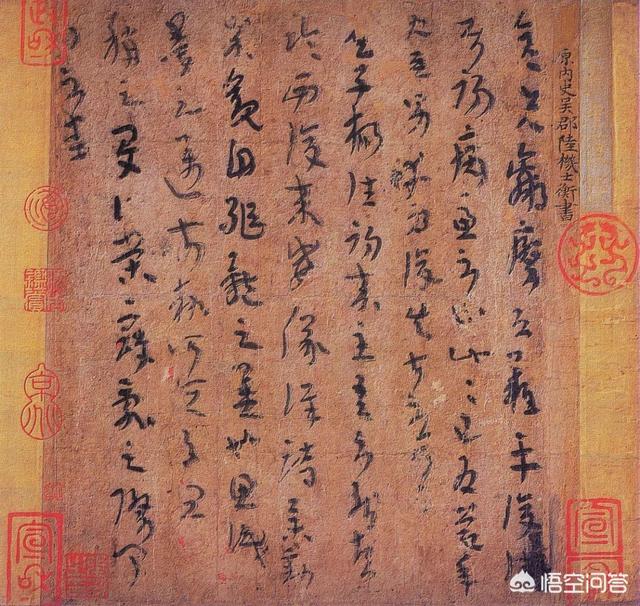 原內史吳郡陸機士衡書
彦先羸瘵恐難平復
屬初病慮不止此此已為慶承
使唯男幸為復失前憂耳
吳子楊往初來主吾不能盡
臨西復來威儀詳跱舉動
成觀自軀體之美也思識
量之邁前執所恆有宜
稱之夏伯榮寇亂之際聞
問不悉
宣和
悟空问答